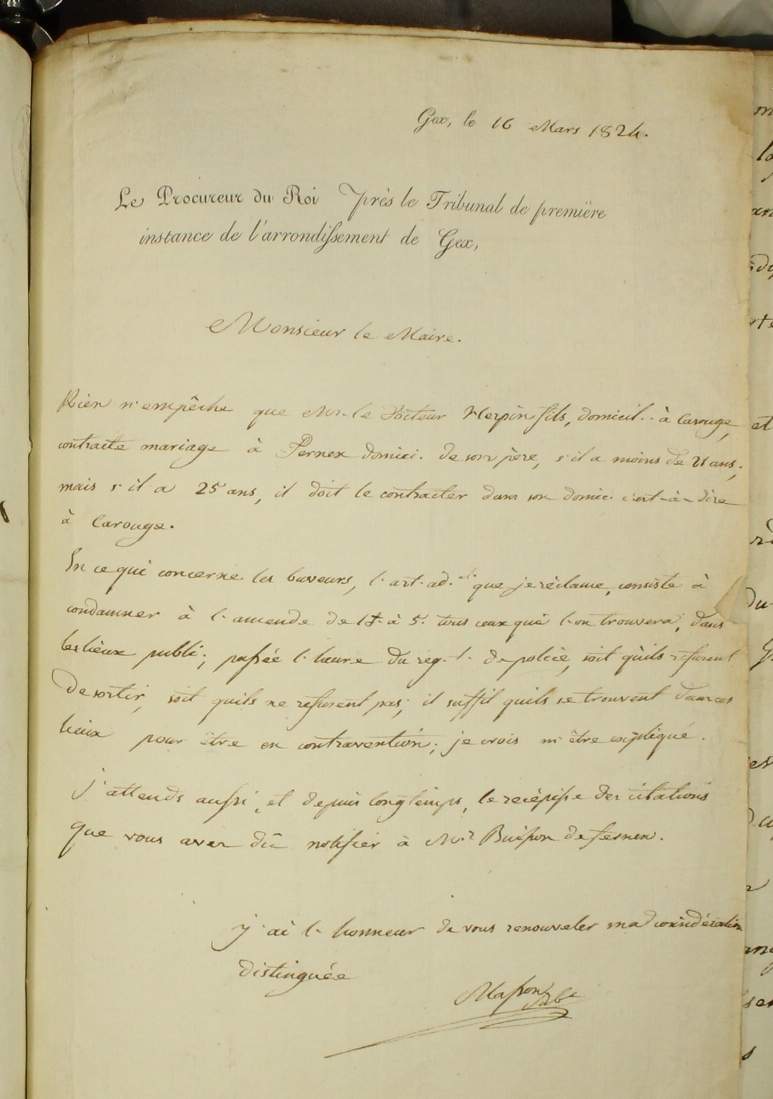 Gex, le 16 Mars 1824.
Le Procureur du Roi près le Tribunal de première
instance de l'arrondissement de Gex,
Monsieur le Maire.
Rien n'empêche que Mr. le Docteur Herpin fils, domicil.. à Carouge,
contracte mariage à Fernex domici. de son père, s'il a moins de 21 ans;
mais s'il a 25 ans, il doit le contracter dans son domic. c'est-à-dire
à Carouge.
En ce qui concerne les buveurs, l'art. ad. que je réclame, consiste à
condamner à l'amende de 1f. à 5. tous ceux que l'on trouvera, dans
les lieux public, passée l'heure du reg.t. de police, soit qu'ils refusent
de sortir, soit quils ne refusent pas; il suffit quils se trouvent dans ces
lieux pour être en contravention; je crois m'être expliqué.
j'attends aussi, et depuis longtemps, le recépisse des citations
que vous avez dû notifier à Mr. Buisson de fernex.
j'ai l'honneur de vous renouveler ma considération
distinguée